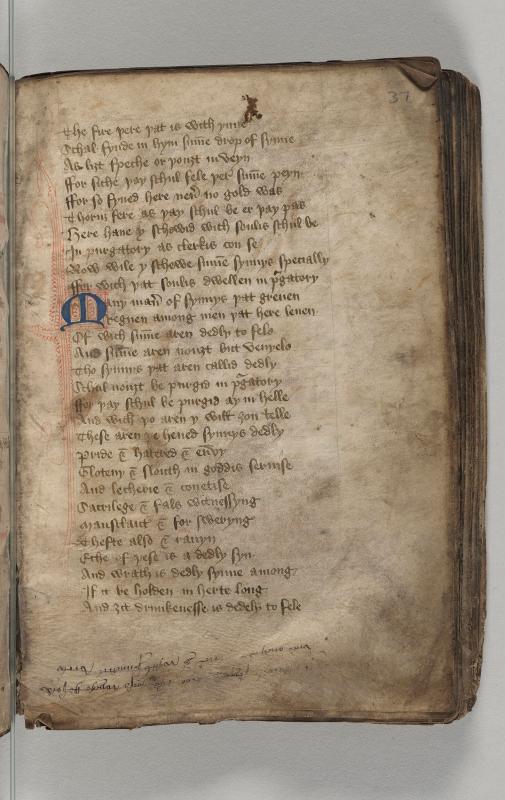 37
The fire þere þat is with ynne
Schal fynde in hym sum̄e drop of synne
As liȝt speche or þouȝt in veyn
ffor siche þay schul fele þer sum̄e peyn
ffor so fyned here neu̓ no gold was
Thorw fere as þay schul be er þay pas
Here haue y schowid with soulis schul be
In purgatory as clerkis con se
Now wile y schewe sum̄e synnys specially
ffor wich þat soulis dwellen in pͣgatory
Many man̄ of synnys þat greuen
Regnen among men þat here leuen
Of wich sum̄e aren dedly to felo
And sum̄e aren nouȝt but venyelo
Tho synnys þat aren callid dedly
Schul nouȝt be purgid in pͣgatory
ffor þay schul be purgid ay in helle
And wich þo aren y will ȝou telle
These aren þe heued synnys dedly
Pride & hatered & envy
Gloteny & slouth in goddis seruise
And lecherie & coueitise
Sacrilege & fals witnessyng
Manslaut̄ & for sweryng
Thefte also & rauyn
Eche of þese is a dedly syn
And wrath is dedly synne among
If it be holden in herte long
And ȝit drunkenesse is dedely to fele